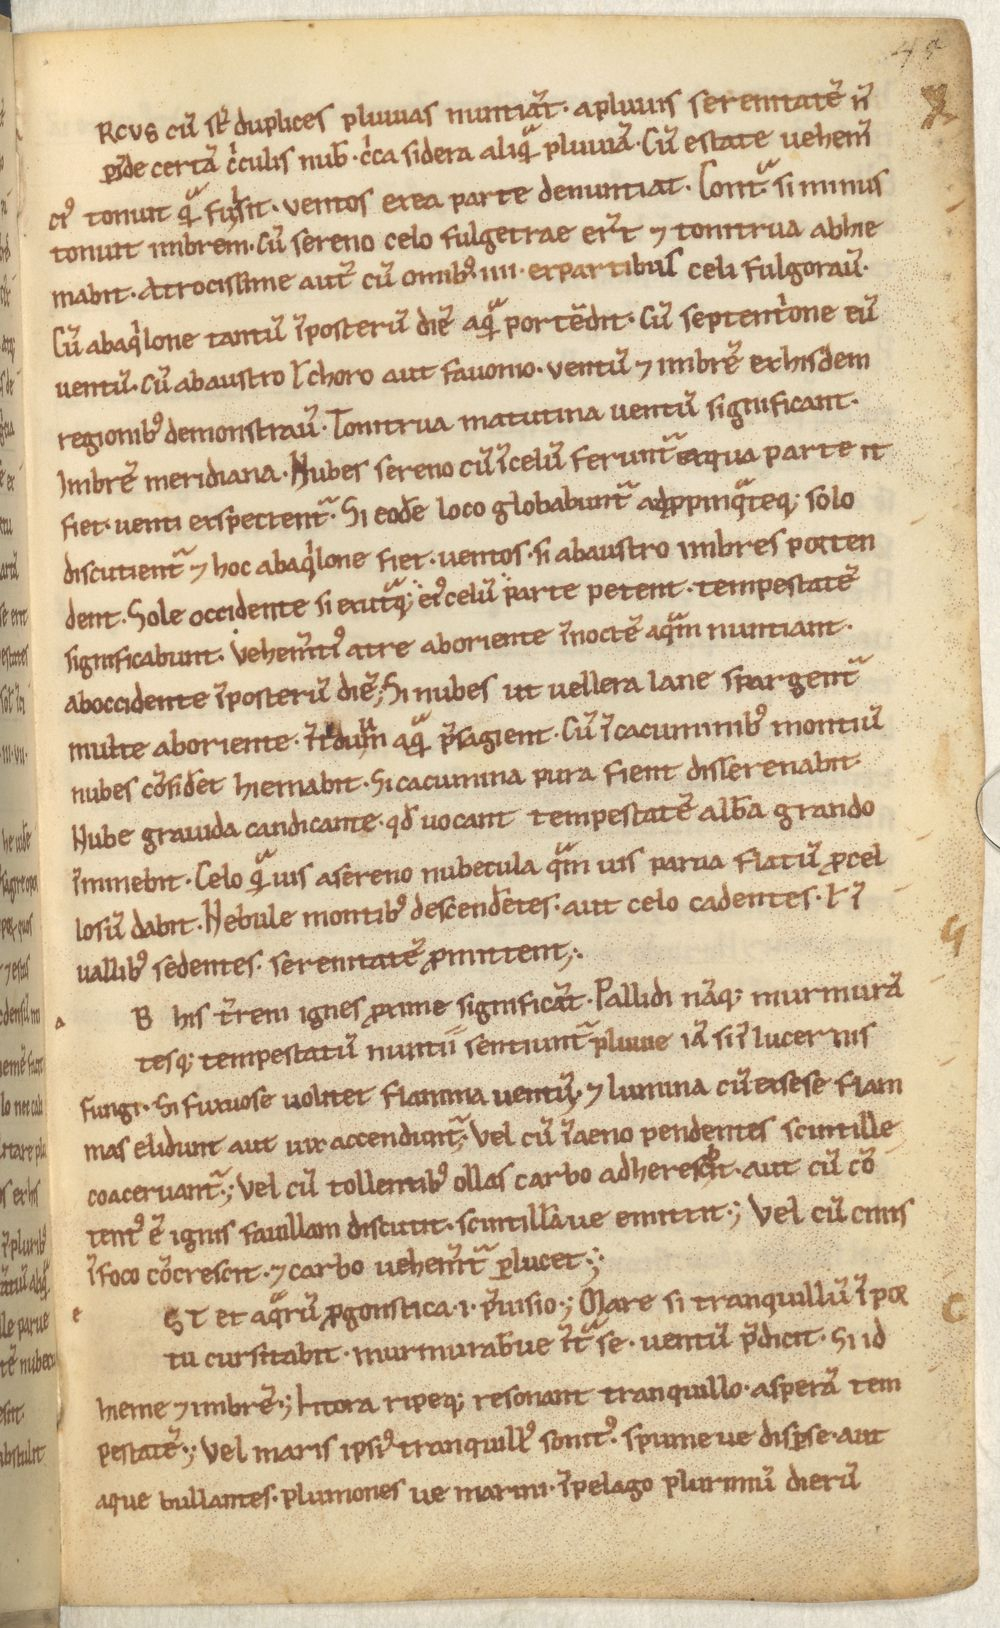 45
Rcus cū sr̄ duplices pluuias nuntiāt. apluuiis serenitatē n̄
ṗde certā c̓culis nub̄ c̓ca sidera aliq̄ pluuiā. Cū estate uehem̄
ci᾽ tonuit q̄ fulsit. uentos exea parte denuntiat. Cont̄ si minus
tonuit imbrem. Cū sereno celo fulgetrae er̄t ⁊ tonitrua ⁊ hie
mabit. Atrocissime aut̄ cū omib᾽ iiii. expartibus celi fulgoraū.
Cū abaq̓lone tantū īposterū diē aq̄ portēdit. Cū septent̓one eū
uentū. Cū abaustro ł choro aut fauonio. uentū ⁊ imbrē exhisdem
regionib᾽ demonstraū. Tonitrua matutina uentū significant.
Imbrē meridiana. Nubes sereno cū ī celū ferunt̄ exqua parte it
fiet. uenti exspectent̄. Si eodē loco globabunt̄ adppinq̄teq; solo
discutient̄ ⁊ hoc abaq̓lone fiet. uentos. si abaustro imbres porten
dent. Sole occidente si exutq̄; ei᾽ celū parte petent. tempestatē
significabunt. Vehem̄ti᾽ atre aboriente īnoctē aq̄m nuntiant.
aboccidente īposterū diē; Si nubes ut uellera lane spargent̄
multe aboriente. aq̄ p̄sagient. Cū ī cacuminib᾽ montiū
nubes cōsidēt hiemabit. Si cacumina pura fient disserenabit.
Nube grauida candicante. qd̄ uocant tempestatē alb̄a grando
īminebit. Celo q̄uis asereno nubecula q̄muis parua flatū p̄cel
losū dabit. Nebule montib᾽ descendētes. aut celo cadentes. ł ī
uallib᾽ sedentes. serenitatē p̄mittent;.
B his t̄reni ignes p̄xime significāt. Pallidi nāq; murmurā
tesq; tempestatū nuntii sentiunt̄ pluuie iā si ī lucernis
fungi. Si fuxuose uolitet flamma uentū. ⁊ lumina cū exsese flam
mas elidunt aut uix accendunt̄; Vel cū īaeno pendentes scintille
coaceruant̄.; Vel cū tollentib᾽ ollas carbo adherescit. aut cū cō
tent᾽ ē ignis fauillam discutit. scintillāue emittit.; Vel cū cinis
ī foco cōcrescit. ⁊ carbo uehem̄t̄ p̄lucet.;
ST et aq̄rū p̄gonstica .i. p̄uisio.; Mare si tranquillū ī por
tu cursitabit. murmurab̄ue īt̄ se. uentū p̄dicit. Si id
hieme ⁊ imbrē.; Litora ripeq; resonant tranquillo. asperā tem
pestatē.; Vel maris ipsi᾽ tranquill᾽ sonit᾽. spumeue disp̄se. aut
aque bullantes. plumones ue marini. īpelago plurimū dierū